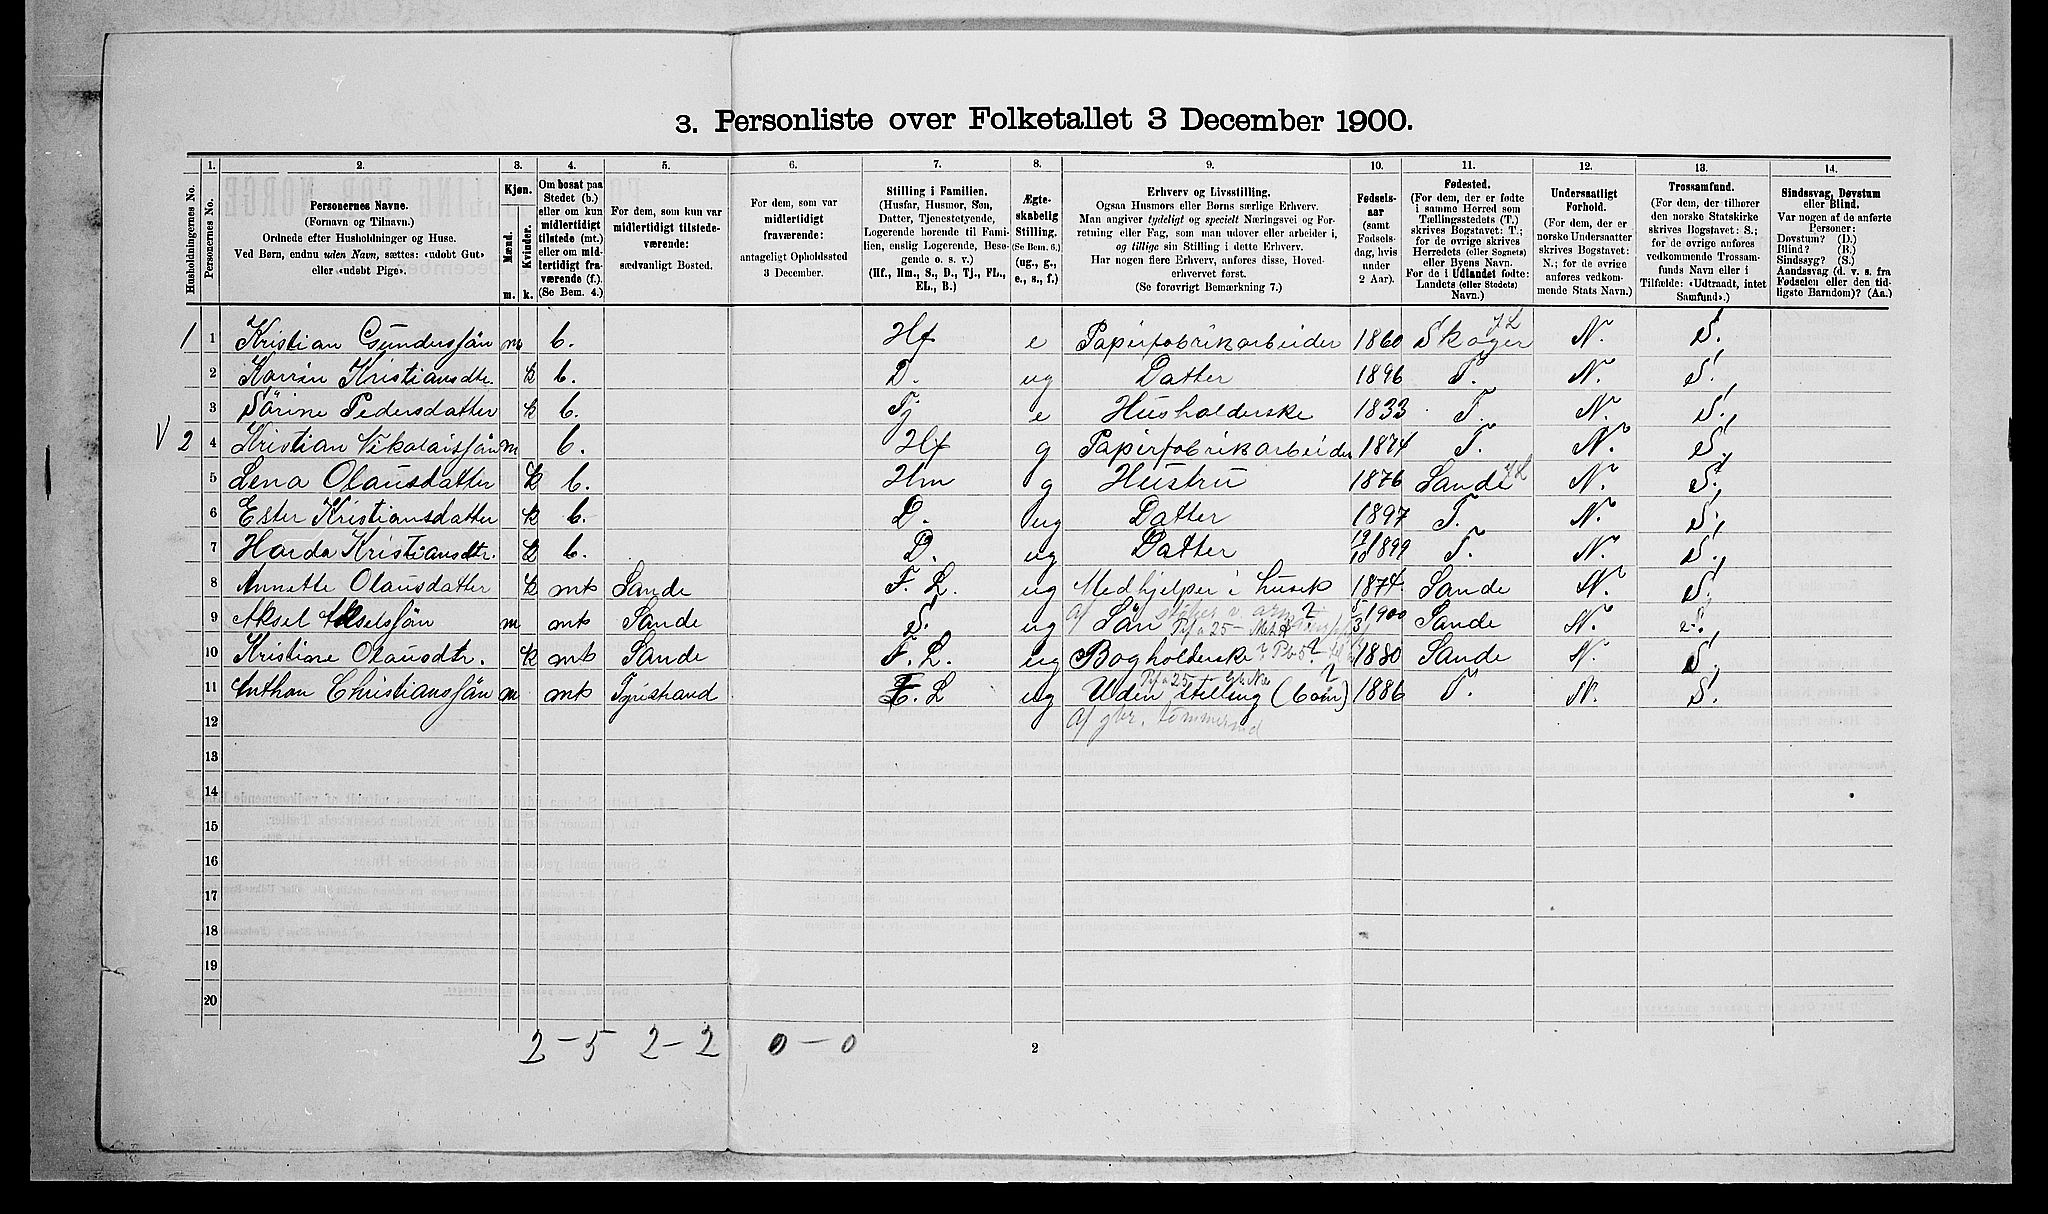 3. Personliste over Folketallet 3 December 1900.
Husholdningernes No.
1.
Personernes No.
2.
Personernes Navne.
(Fornavn og Tilnavn.)
Ordnede efter Husholdninger og Huse.
Ved Børn, endnu uden Navn, sættes: «udøbt Gut»
eller «udøbt Pige».
3.
Kjøn.
Mænd.
Kvinder.
m. k.
4.
Om bosat paa
Stedet (b.)
eller om kun
midlertidigt
tilstede (mt.)
eller om mid-
lertidigt fra-
værende (f.).
(Se Bem. 4.)
5.
For dem, som kun var
midlertidigt tilstede-
værende:
sædvanligt Bosted.
6.
For dem, som var
midlertidigt
fraværende:
antageligt Opholdssted
3 December.
7.
Stilling i Familien.
(Husfar, Husmor, Søn,
Datter, Tjenestetyende,
Logerende hørende til Fami-
lien, enslig Logerende, Besø-
gende o. s. v.)
(Hf., Hm., S., D., Tj., FL.,
EL., B.)
8.
Ægte-
skabelig
Stilling.
(Se Bem. 6.)
(ug., g.,
e., s., f.)
9.
Erhverv og Livsstilling.
Ogsaa Husmors eller Børns særlige Erhverv.
Man angiver tydeligt og specielt Næringsvei og For-
retning eller Fag, som man udøver eller arbeider i,
og tillige sin Stilling i dette Erhverv.
Har nogen flere Erhverv, anføres disse, Hoved-
erhvervet først.
(Se forøvrigt Bemærkning 7.)
10.
Fødsels-
aar
(samt
Fødsels-
dag, hvis
under
2 Aar).
11.
Fødested.
(For dem, der er fødte
i samme Herred som
Tællingsstedets (T.)
skrives Bogstavet: T.;
for de øvrige skrives
Herredets (eller Sognets)
eller Byens Navn.
For de i Udlandet fødte:
Landets (eller Stedets)
Navn.)
12.
Undersaatligt
Forhold.
(For dem, der er
norske Undersaatter
skrives Bogstavet:
N.; for de øvrige
anføres vedkom-
mende Stats Navn.)
13.
Trossamfund.
(For dem, der tilhører
den norske Statskirke
skrives Bogstavet: S.;
for de øvrige anføres
vedkommende Trossam-
funds Navn eller i
Tilfælde: «Udtraadt, intet
Samfund».)
14.
Sindssvag, Døvstum
eller Blind.
Var nogen af de anførte
Personer:
Døvstum? (D.)
Blind? (B.)
Sindssyg? (S.)
Aandssvag (d. v. s. fra
Fødselen eller den tid-
ligste Barndom)? (Aa.)
1 1 Kristian Gundersjön m b. Hf e Papirfabrikarbeider 1860 Skoger N. S.
2 Karrin Kristiansdtr. k b. D. ug Datter 1896 T. N. S.
3 Sörine Pedersdatter k b. Tj e Husholderske 1833 T. N. S.
V 2 4 Kristian Nikolaisjön m b. Hf g Papirfabrikarbeider 1874 T. N. S.
5 Lena Olausdatter k b. Hm g Hustru 1876 Sande N. S.
6 Ester Kristiansdatter k b. D. ug Datter 1897 T. N. S.
7 Harda Kristiansdtr. k b. D. ug Datter 19/10 1899 T. N. S.
8 Annette Olausdatter k mt Sande F. L. ug Medhjelper i huset 1874 Sande N. S.
9 Aksel Akselsjön m mt Sande S. ug Sön 5/3 1900 Sande N. S.
10 Kristine Olausdtr. k mt Sande F. L. ug Bogholderske 1880 Sande N. S.
11 Anthon Christiansjön m mt Tyristrand F. L ug Uden stilling ( 1886 T. N. S.
12
13
14
15
16
17
18
19
20
2-5 2-2 0-0
2